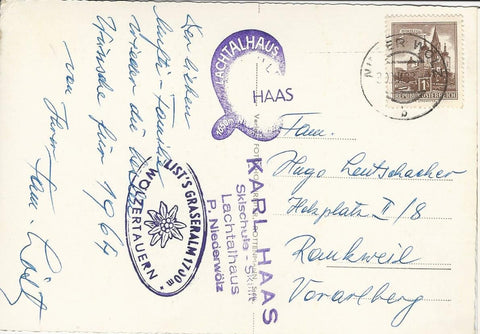 Der lieben
Mufti-Familie
wieder die besten
Wünsche für 1964
von Ihrer Fam. List
LIST'S GRASERALM 1700m
WÖLZERTAUERN
LACHTALHAUS
HAAS
KARL HAAS
Skischule - Skilift
Lachtalhaus
P. Niederwölz
REPUBLIK ÖSTERREICH
NIEDERWÖLZ
b
Fam.
Hugo Lentschacher
Holzplatz II/8
Rankweil
Vorarlberg